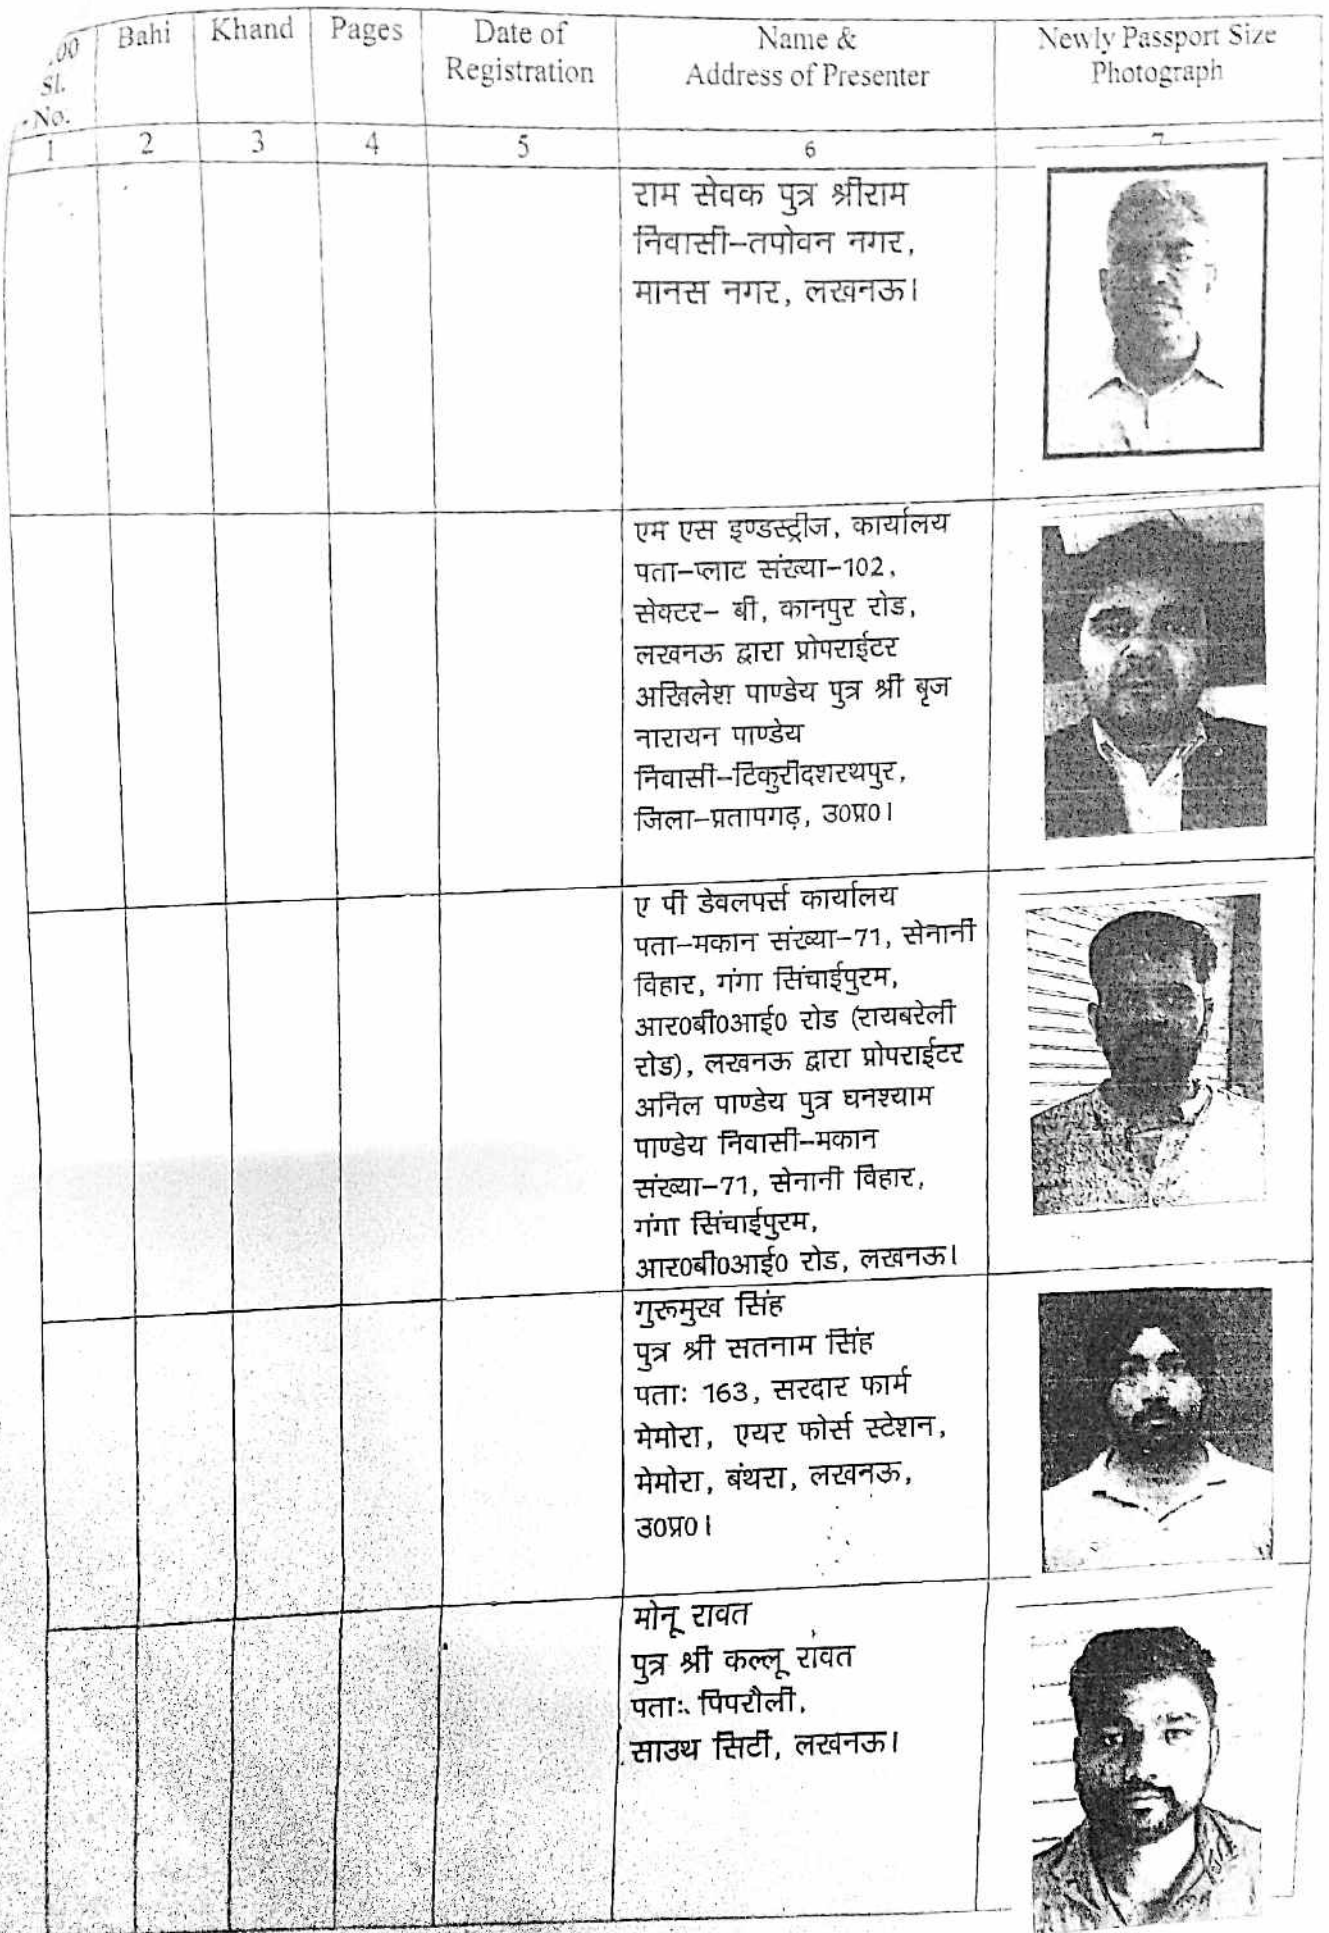 .00 Sl. No.
Bahi
Khand
Pages
Date of
Registration
Name &
Address of Presenter
Newly Passport Size
Photograph
1 2 3 4 5 6 7
राम सेवक पुत्र श्रीराम
निवासी-तपोवन नगर,
मानस नगर, लखनऊ।
एम एस इण्डस्ट्रीज, कार्यालय
पता-प्लाट संख्या-102,
सेक्टर- बी, कानपुर रोड,
लखनऊ द्वारा प्रोपराईटर
अखिलेश पाण्डेय पुत्र श्री बृज
नारायन पाण्डेय
निवासी-टिकुरीदशरथपुर,
जिला-प्रतापगढ़, उ0प्र0।
ए पी डेवलपर्स कार्यालय
पता-मकान संख्या-71, सेनानी
विहार, गंगा सिंचाईपुरम,
आर0बी0आई0 रोड (रायबरेली
रोड), लखनऊ द्वारा प्रोपराईटर
अनिल पाण्डेय पुत्र घनश्याम
पाण्डेय निवासी-मकान
संख्या-71, सेनानी विहार,
गंगा सिंचाईपुरम,
आर0बी0आई0 रोड, लखनऊ।
गुरूमुख सिंह
पुत्र श्री सतनाम सिंह
पताः 163, सरदार फार्म
मेमोरा, एयर फोर्स स्टेशन,
मेमोरा, बंथरा, लखनऊ,
उ0प्र0।
मोनू रावत
पुत्र श्री कल्लू रावत
पताः पिपरौली,
साउथ सिटी, लखनऊ।